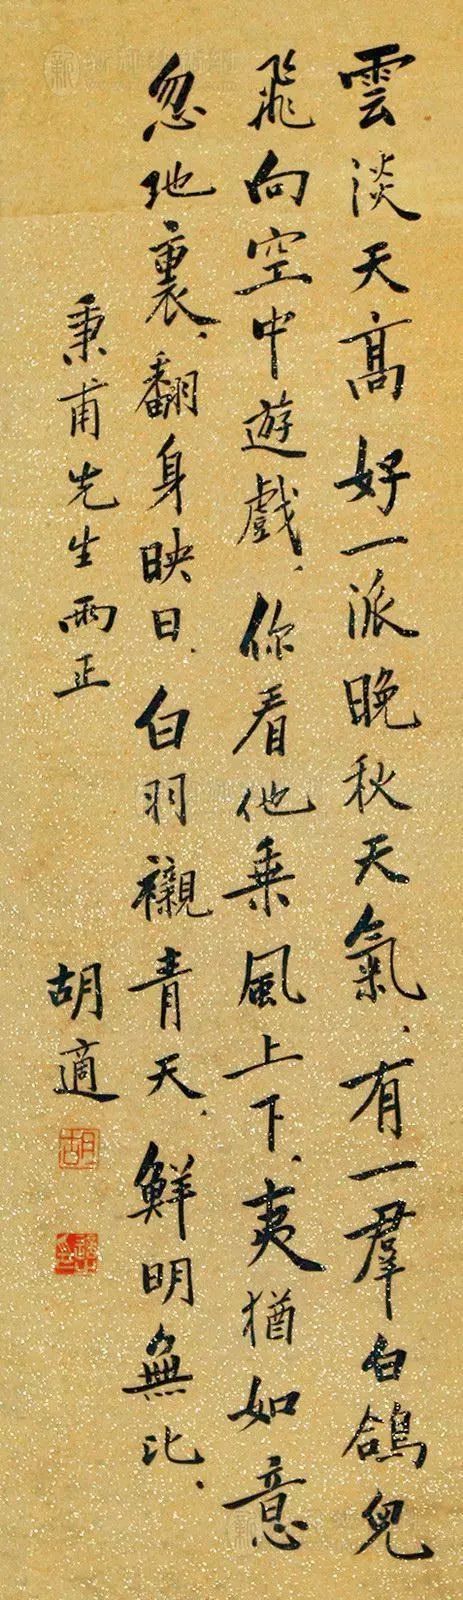 雲淡天高好一派晚秋天氣、有一羣白鴿兒
飛向空中遊戲、你看他乘風上下、夷猶如意
忽地裏、翻身映日、白羽襯青天、鮮明無比、
秉甫先生兩正
胡適
胡